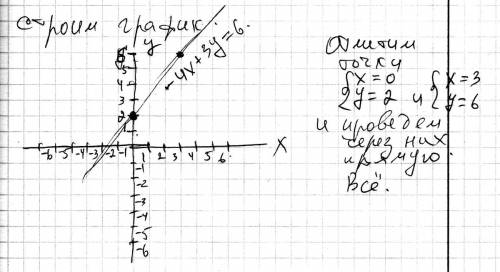 строим график.
y
-4x+3y=6.
6
5
4
3
2
1
-6 -5 -4 -3 -2 -1 1 2 3 4 5 6
x
-1
-2
-3
-4
-5
-6
Отметим
точки
{x=0
{y=2 и {x=3
{y=6
и проведем
через них
прямую.
Всё.